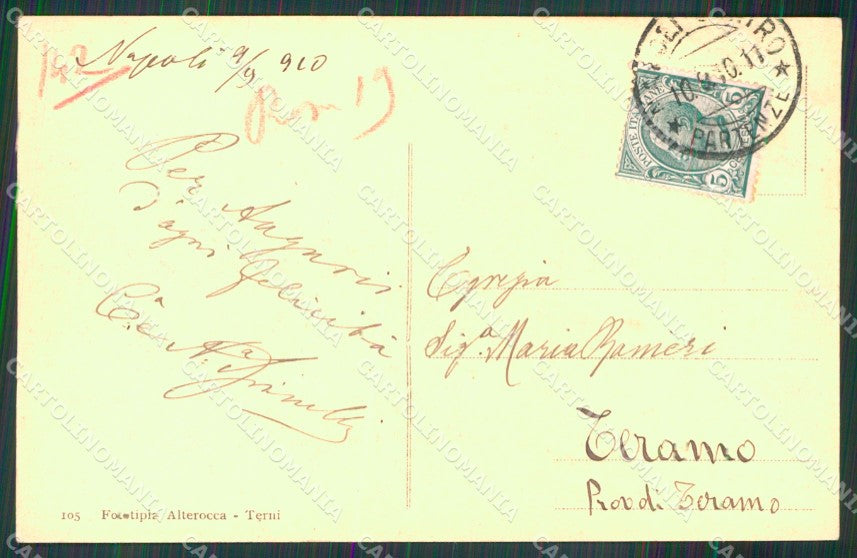 Napoli 9/9 910
142
19
Per Auguri
d'ogni felicità
C.a N.a
NAPOLI CENTRO
10.9.10.11
PARTENZE
POSTE ITALIANE
5
Egregia
Sig.a Maria Rameri
Teramo
Prov di Teramo
105 Fototipia Alterocca - Terni
CARTOLINOMANIA